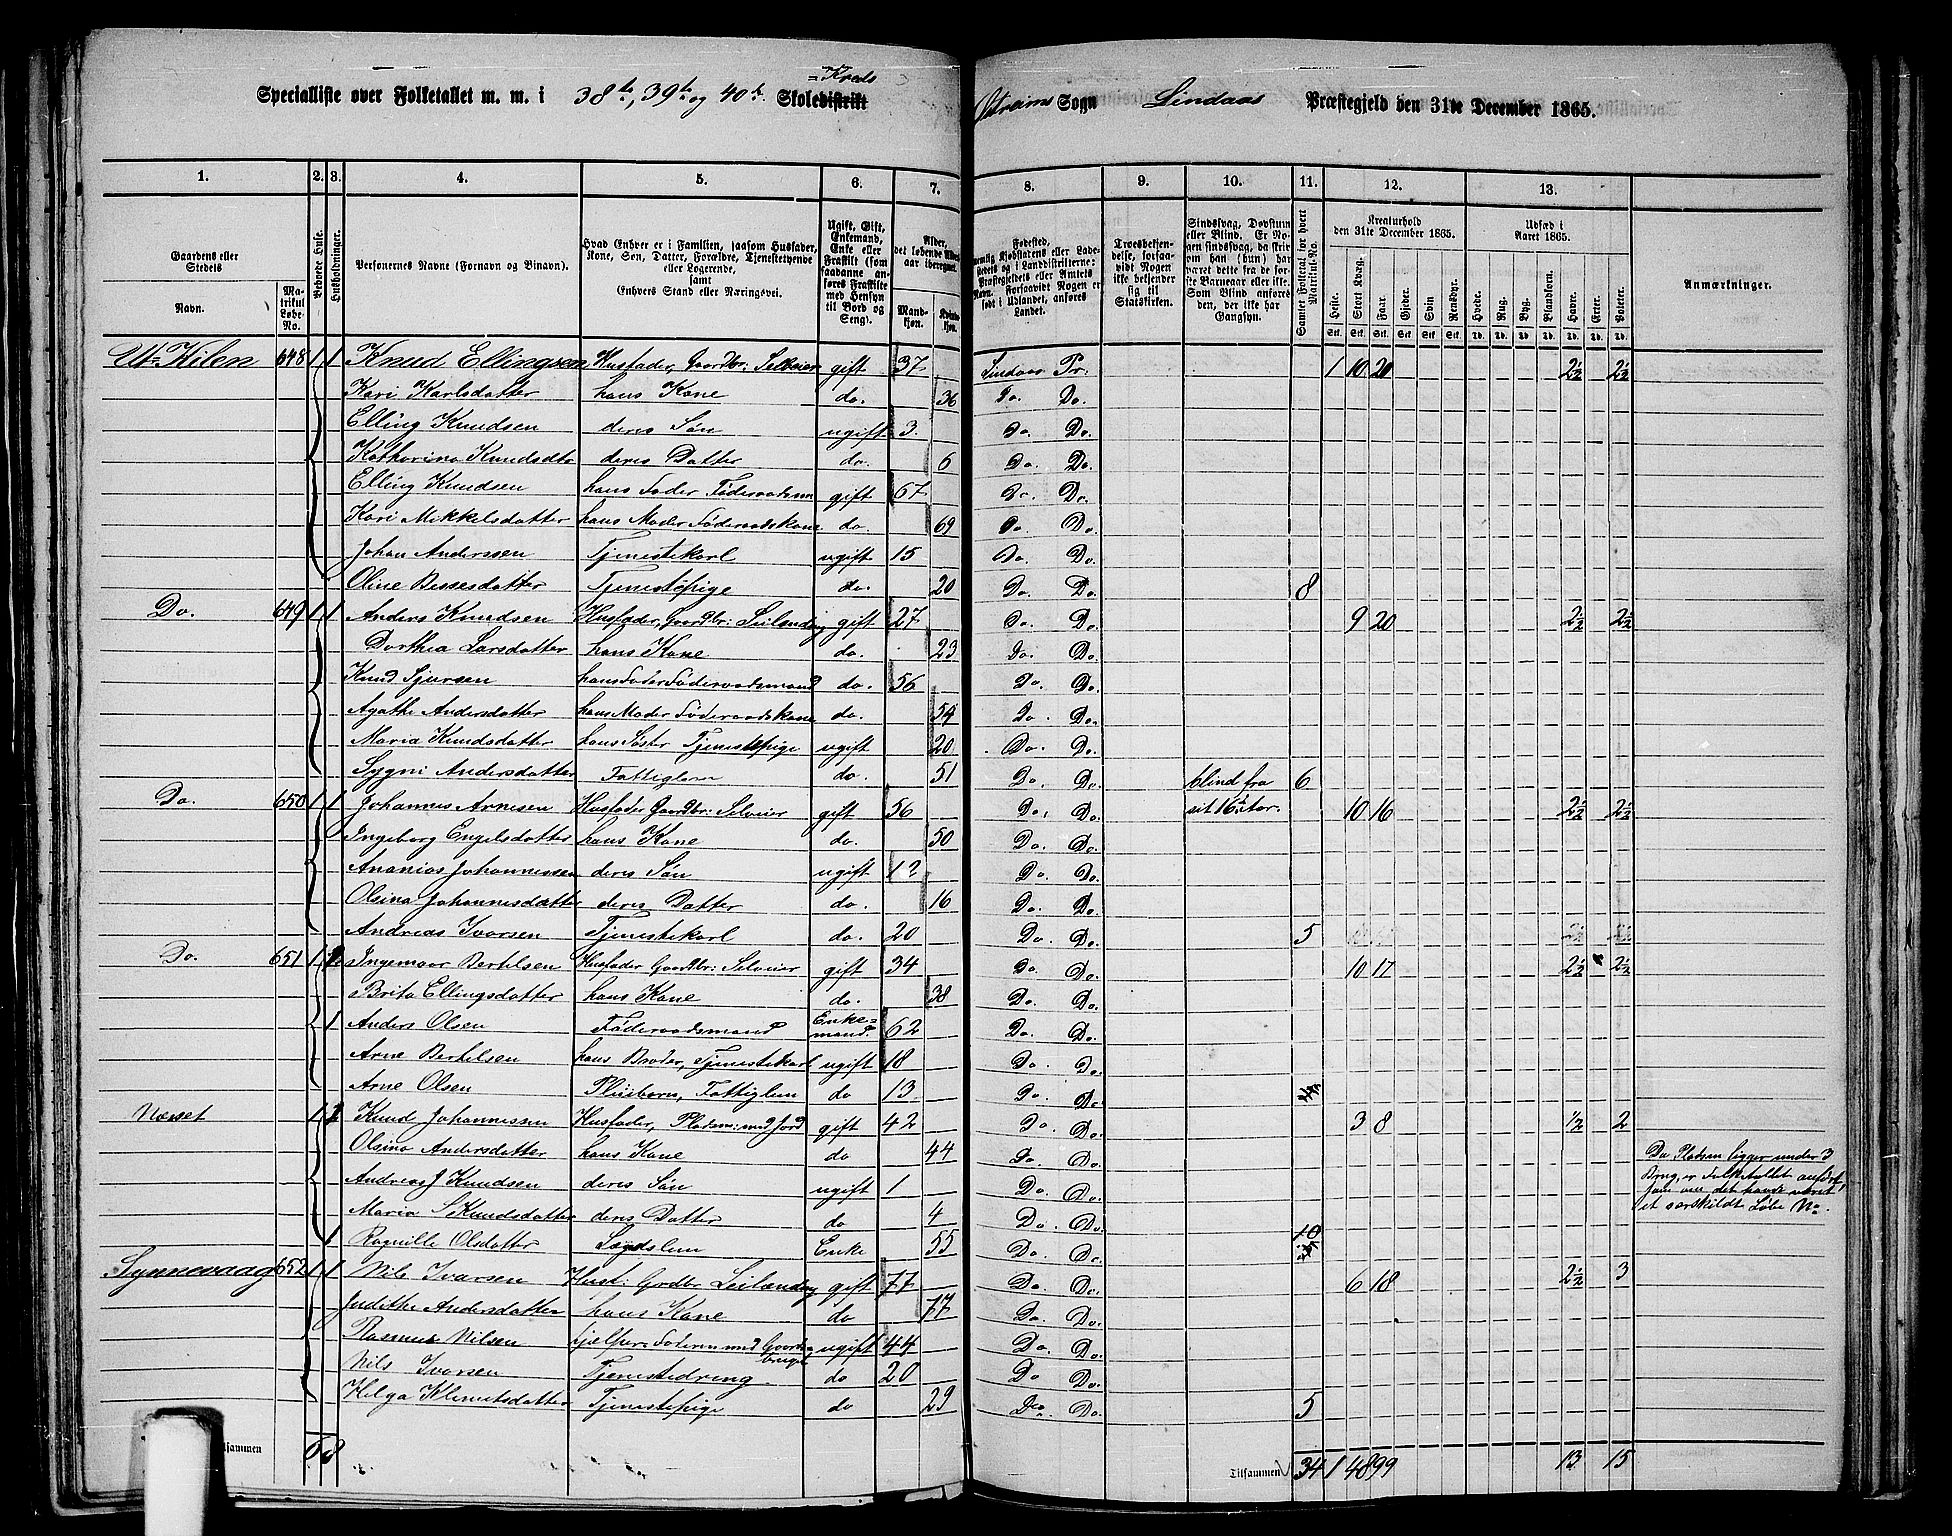 Specialliste over Folketallet m. m. i 38te, 39te og 40de =Kreds Skoledistrikt Sogn Lindaas Præstegjeld den 31te December 1865.
1. 2. 3. 4. 5. 6. 7. 8. 9. 10. 11. 12. 13.
Gaardens eller Stedets
Navn. Matrikul Løbe-No.
Beboede Huse.
Husholdninger.
Personernes Navne (Fornavn og Binavn).
Hvad Enhver er i Familien, saasom Husfader, Kone, Søn, Datter, Forældre, Tjenestetyende eller Logerende, samt Enhvers Stand eller Næringsvei.
Ugift, Gift, Enkemand, Enke eller Fraskilt (som saadanne anføres Fraskilte med Hensyn til Bord og Seng).
Alder, det løbende Alders- aar iberegnet.
Mand- kjøn. Kvinde- kjøn.
Troesbekjendelse, forsaavidt Nogen ikke bekjender sig til Statskirken.
Sindssvag, Døvstum eller Blind.
Samlet Folketal for hvert Matrikul-No.
Kreaturhold den 31te December 1865.
Heste. Stort Kvæg. Faar. Gjeder. Svin Rensdyr.
Udsæd i Aaret 1865.
Hvede. Rug. Byg. Blandkorn. Havre. Erter. Poteter.
Anmærkninger.
Ut= Kilen 648 1 1 Knud Ellingsen Husfader, Gaardbr: Selveier gift 37 Lindaas Pr. 1 10 20 2½ 2½
Kari Karlsdatter hans Kone do. 36 Do. Do.
Elling Knudsen deres Søn ugift 3 Do. Do.
Katharina Knudsdtr deres Datter do. 6 Do. Do.
Elling Knudsen hans Fader Føderaadsm gift 67 Do. Do.
Kari Mikkelsdatter hans Moder Føderaadskone do. 69 Do. Do.
Johan Anderssen Tjenestekarl ugift 15 Do. Do.
Oline Bessesdatter Tjenestepige do. 20 Do. Do. 8
Do. 649 1 1 Anders Knudsen Husfader, Gaardbr: Leilending gift 27 Do. Do. 9 20 2½ 2½
Dorthea Larsdatter hans Kone do. 23 Do. Do.
Knud Sjursen hans Fader Føderaadsmand do. 56 Do. Do.
Agathe Andersdatter hans Moder Føderaadskone do. 54 Do. Do.
Maria Knudsdatter hans Søster Tjenestepige ugift 20 Do. Do.
Sygni Andersdatter Fattiglem do. 51 Do. Do. blind fra 6
Do. 650 1 1 Johannes Arnesen Husfader Gaardbr: Selveier gift 56 Do. Do. sit 16de Aar. 10 16 2½ 2½
Ingeborg Engelsdatter hans Kone do. 50 Do. Do.
Ananias Johannessen deres Søn ugift 12 Do. Do.
Olsina Johannesdatter deres Datter do. 16 Do. Do.
Andreas Ivarsen Tjenestekarl do. 20 Do. Do. 5
Do. 651 1 Ingemaar Bertelsen Husfader Gaardbr: Selveier gift 34 Do. Do. 10 17 2½ 2½
Brita Ellingsdatter hans Kone do. 38 Do. Do.
1 Anders Olsen Føderaadsmand Enke= mand. 62 Do. Do.
Arne Bertelsen hans Broder, Tjenestekarl ugift 18 Do. Do.
Arne Olsen Pleiebarn, Fattiglem do 13 Do. Do.
Næset 1 Knud Johannessen Husfader, Pladsm: med Jord gift 42 Do. Do. 3 8 ½ 2
Olsina Andersdatter hans Kone do 44 Do. Do.
Andreas J Knudsen deres Søn ugift 1 Do. Do.
Maria S Knudsdatter deres Datter do 4 Do. Do.
1 Ragnille Olsdatter Lægdslem Enke 55 Do. Do. 10
Da Pladsen ligger under 3
Brug, er Folketallet anført
som om det havde været
et særskildt Løbe No.
Synnevaag 652 1 1 Nils Ivarsen Husf: Gardbr Leilending gift 77 Do. Do. 6 18 2½ 3
Judithe Andersdatter hans Kone do 77 Do. Do.
Rasmus Nilsen hjelper Faderen med Gaards- bruget ugift 44 Do. Do.
Nils Ivarsen Tjenestedreng do 20 Do. Do.
Helga Klemetsdatter Tjenestepige do 29 Do. Do. 5
Tilsammen 6 8 Tilsammen 34 1 48 99 13 15